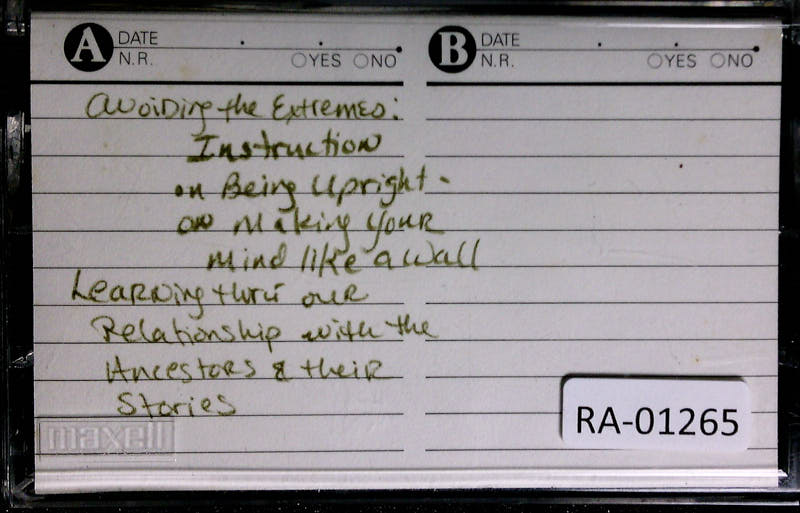 A DATE
N.R. YES NO
B DATE
N.R. YES NO
Avoiding the Extremes:
Instruction
on Being Upright -
on Making Your
Mind like a Wall
Learning thru our
Relationship with the
Ancestors & their
Stories
maxell
RA-01265